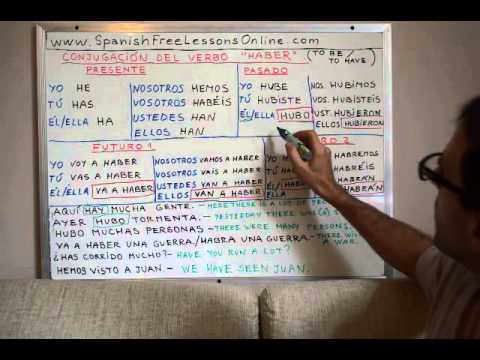 www.SpanishFreeLessonsOnline.com
CONJUGACIÓN DEL VERBO "HABER" (TO BE / TO HAVE)
PRESENTE
YO HE
TÚ HAS
ÉL/ELLA HA
NOSOTROS HEMOS
VOSOTROS HABÉIS
USTEDES HAN
ELLOS HAN
PASADO
YO HUBE
TÚ HUBISTE
ÉL/ELLA HUBO
NOS. HUBIMOS
VOS. HUBISTEIS
UST. HUBIERON
ELLOS HUBIERON
FUTURO 1
YO VOY A HABER
TÚ VAS A HABER
ÉL/ELLA VA A HABER
NOSOTROS VAMOS A HABER
VOSOTROS VAIS A HABER
USTEDES VAN A HABER
ELLOS VAN A HABER
RO 2
YO HA
TÚ HA
ÉL/HAB
ELLA
HABREMOS
HABRÉIS
HABRÁN
HABRÁN
AQUÍ HAY MUCHA GENTE. - HERE THERE IS A LOT OF PEO
AYER HUBO TORMENTA. - YESTERDAY THERE WAS (A) S
HUBO MUCHAS PERSONAS - THERE WERE MANY PERSONS
VA A HABER UNA GUERRA./HABRA UNA GUERRA. - THERE WILL
A WAR.
¿HAS CORRIDO MUCHO? - HAVE YOU RUN A LOT?
HEMOS VISTO A JUAN. - WE HAVE SEEN JUAN.